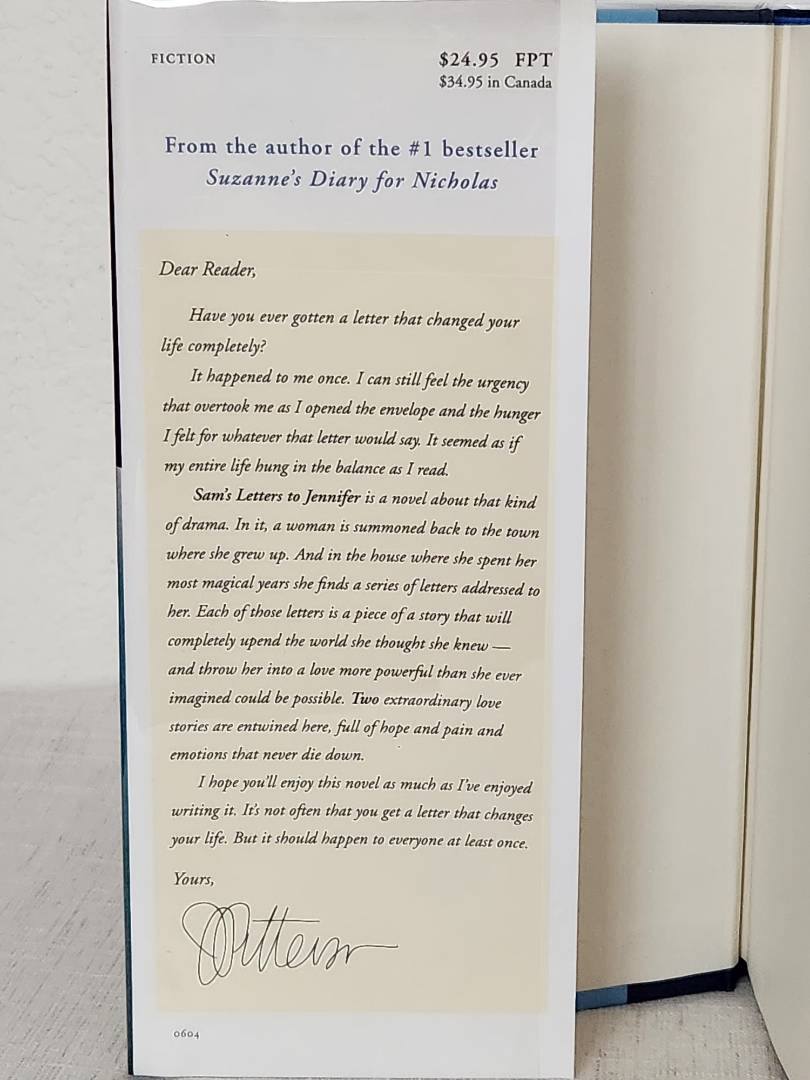 FICTION
$24.95 FPT
$34.95 in Canada
From the author of the #1 bestseller
Suzanne's Diary for Nicholas
Dear Reader,
Have you ever gotten a letter that changed your
life completely?
It happened to me once. I can still feel the urgency
that overtook me as I opened the envelope and the hunger
I felt for whatever that letter would say. It seemed as if
my entire life hung in the balance as I read.
Sam's Letters to Jennifer is a novel about that kind
of drama. In it, a woman is summoned back to the town
where she grew up. And in the house where she spent her
most magical years she finds a series of letters addressed to
her. Each of those letters is a piece of a story that will
completely upend the world she thought she knew —
and throw her into a love more powerful than she ever
imagined could be possible. Two extraordinary love
stories are entwined here, full of hope and pain and
emotions that never die down.
I hope you'll enjoy this novel as much as I've enjoyed
writing it. It's not often that you get a letter that changes
your life. But it should happen to everyone at least once.
Yours,
0604